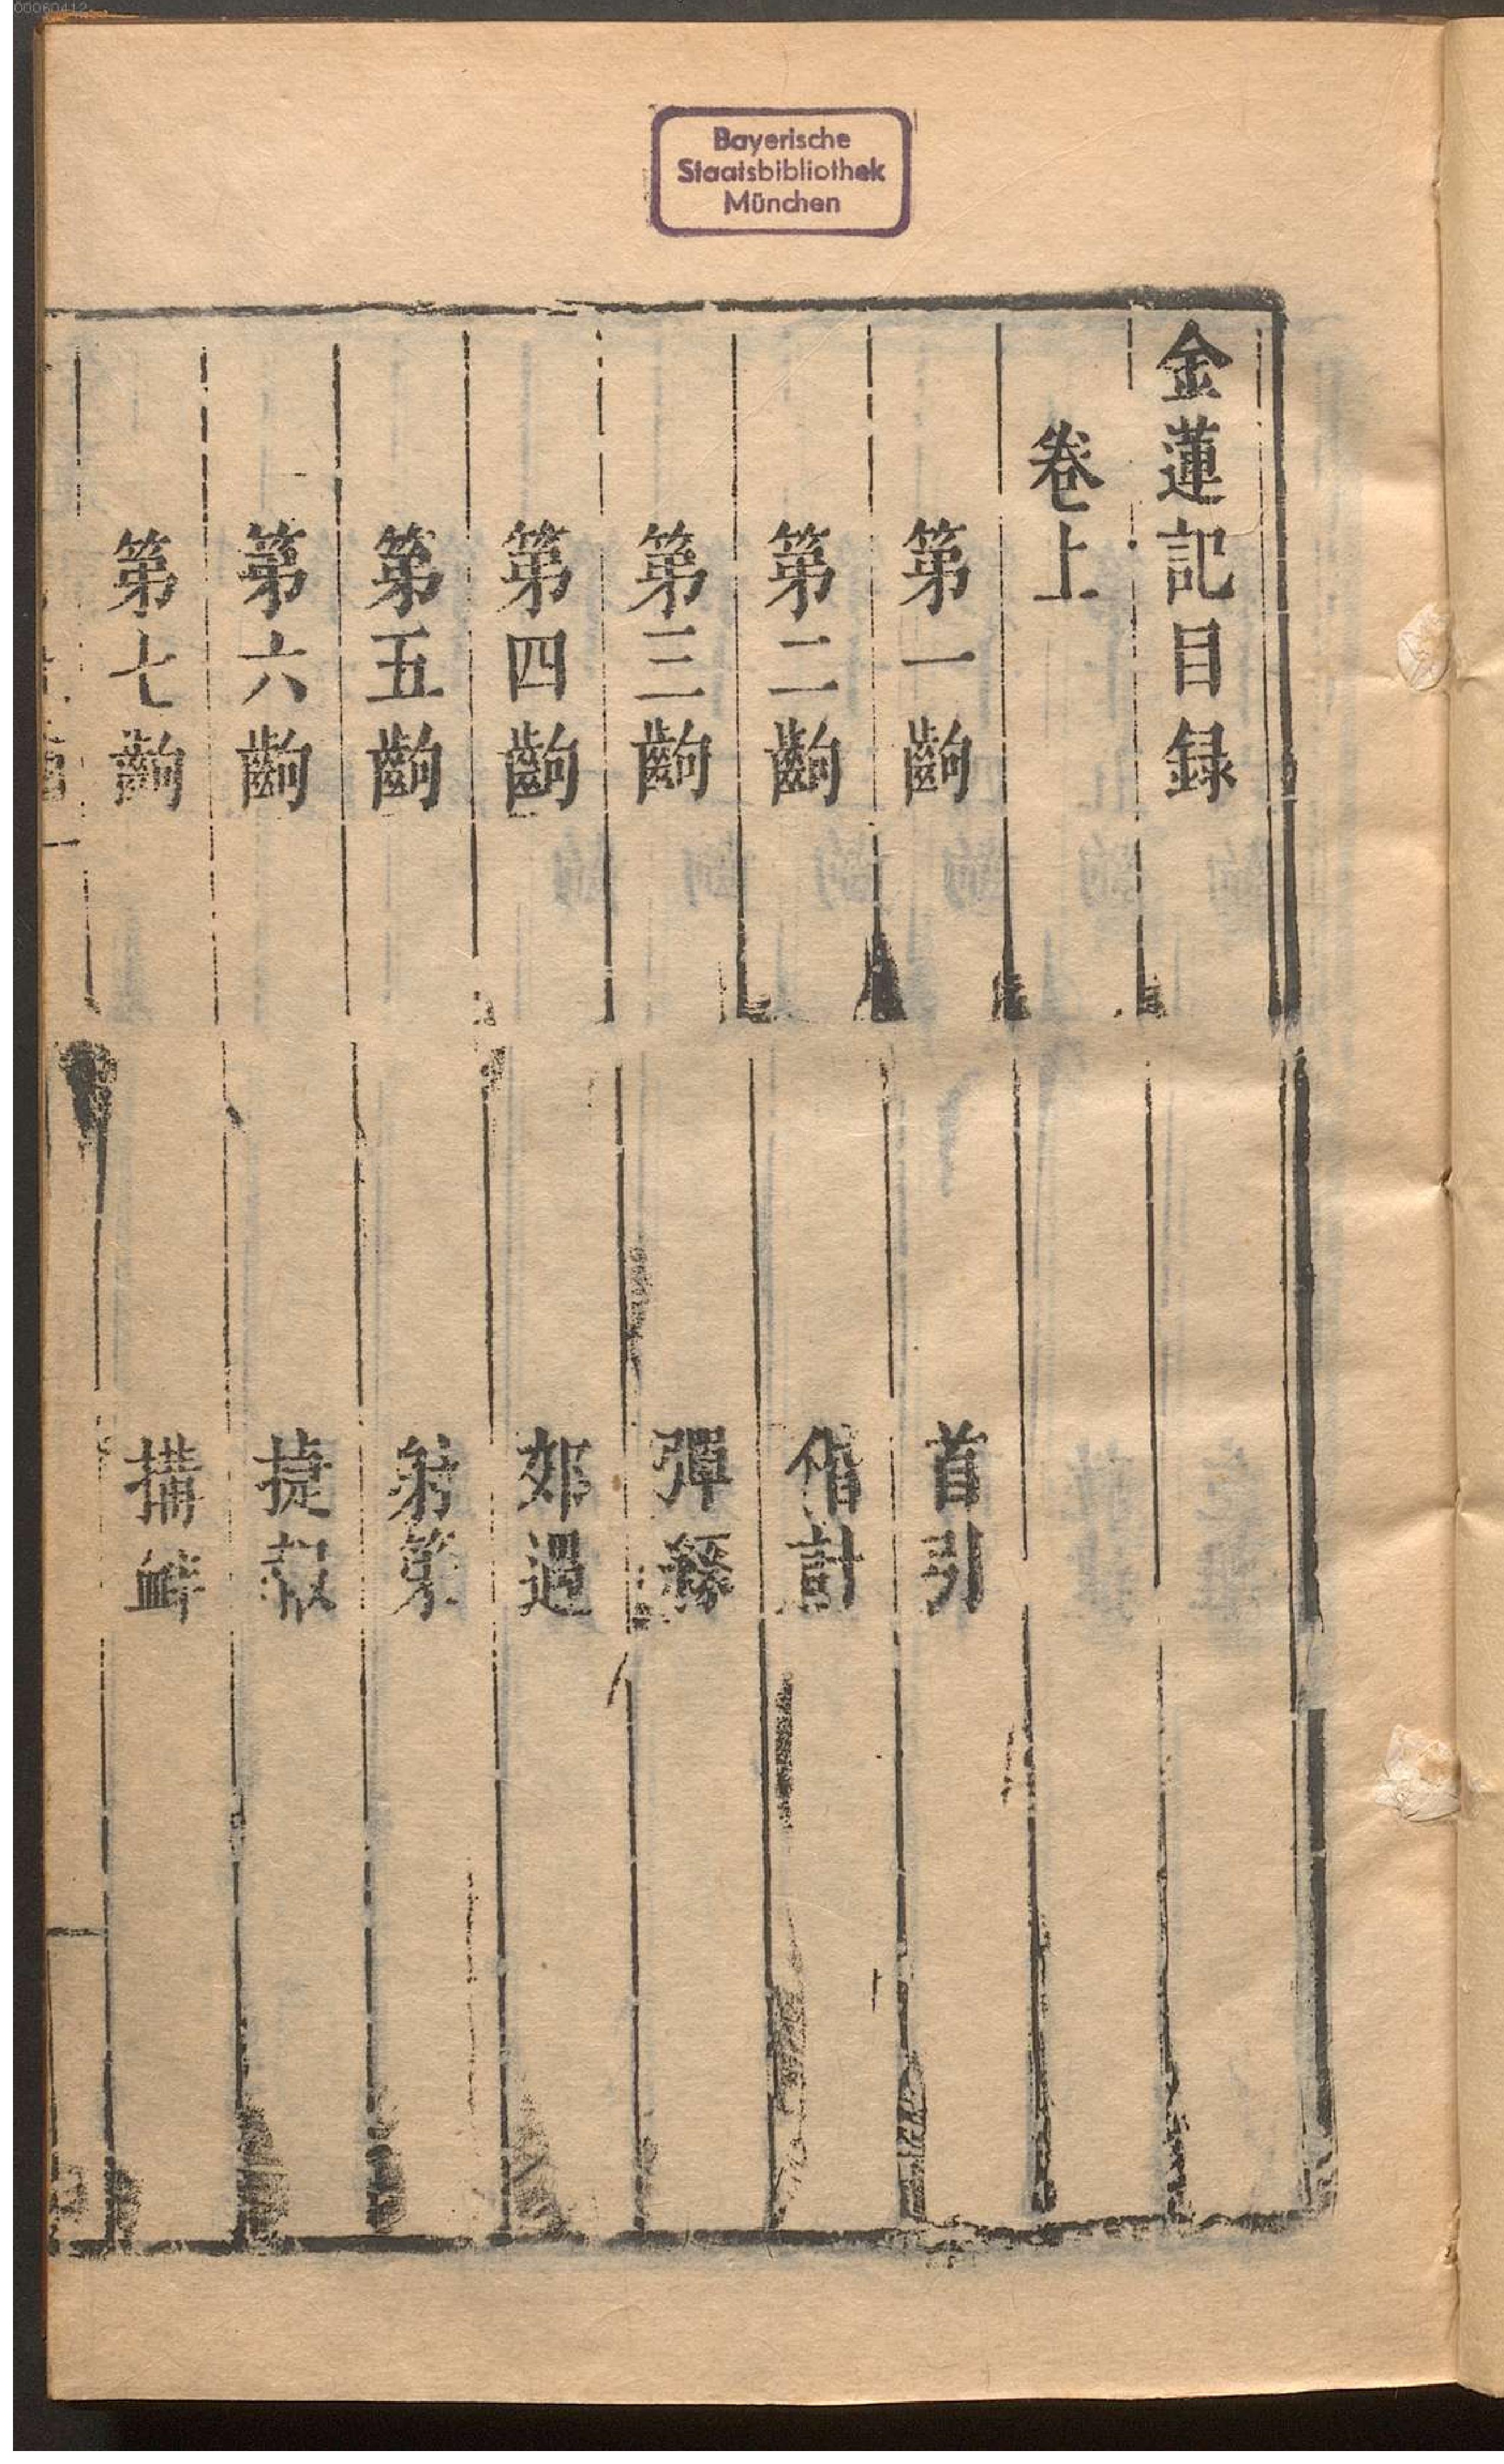 00060412
Bayerische
Staatsbibliothek
München
金蓮記目録
卷上
第一齣 首引
第二齣 偕計
第三齣 彈絲
第四齣 郊遇
第五齣 射策
第六齣 捷報
第七齣 搆衅